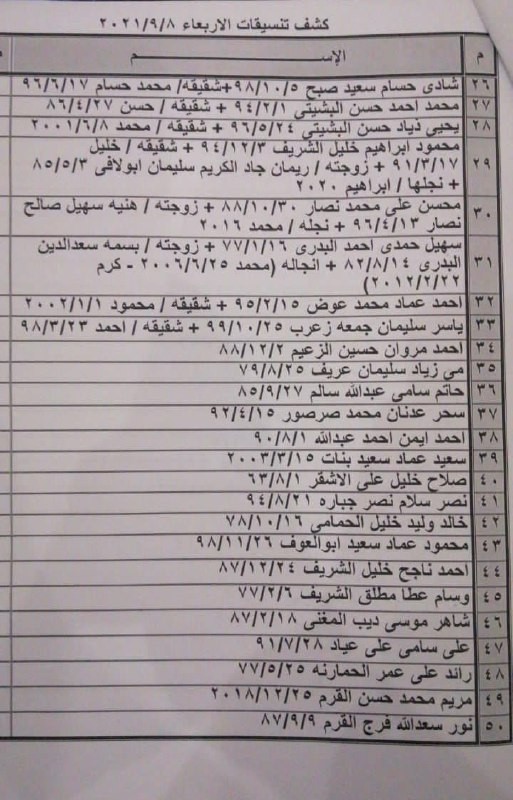 كشف تنسيقات الاربعاء ٢٠٢١/٩/٨
م الإســـــــم
٢٦ شادى حسام سعيد صبح ٩٨/١٠/٥+شقيقه/ محمد حسام ٩٦/٦/١٧
٢٧ محمد احمد حسن البشيتي ٩٤/٢/١ + شقيقه / حسن ٨٦/٤/٢٧
٢٨ يحيى ذياد حسن البشيتي ٩٦/٥/٢٤ + شقيقه / محمد ٢٠٠١/٦/٨
٢٩ محمود ابراهيم خليل الشريف ٩٤/١٢/٣ + شقيقه / خليل
٩١/٣/١٧ + زوجته / ريمان جاد الكريم سليمان ابولافى ٨٥/٥/٣
+ نجلها / ابراهيم ٢٠٢٠
٣٠ محسن على محمد نصار ٨٨/١٠/٣٠ + زوجته / هنيه سهيل صالح
نصار ٩٦/٤/١٣ + نجله / محمد ٢٠١٦
٣١ سهيل حمدى احمد البدرى ٧٧/١/١٦ + زوجته / بسمه سعدالدين
البدرى ٨٢/٨/١٤ + انجاله (محمد ٢٠٠٦/٦/٢٥ - كرم
٢٠١٢/٢/٢٢)
٣٢ احمد عماد محمد عوض ٩٥/٢/١٥ + شقيقه / محمود ٢٠٠٢/١/١
٣٣ ياسر سليمان جمعه زعرب ٩٩/١٠/٢٥ + شقيقه / احمد ٩٨/٣/٢٣
٣٤ احمد مروان حسين الزعيم ٨٨/١٢/٢
٣٥ مى زياد سليمان عريف ٧٩/٨/٢٥
٣٦ حاتم سامى عبدالله سالم ٨٥/٩/٢٧
٣٧ سحر عدنان محمد صرصور ٩٢/٤/١٥
٣٨ احمد ايمن احمد عبدالله ٩٠/٨/١
٣٩ سعيد عماد سعيد بنات ٢٠٠٣/٣/١٥
٤٠ صلاح خليل على الاشقر ٦٣/٨/١
٤١ نصر سلام نصر جباره ٩٤/٨/٢١
٤٢ خالد وليد خليل الحمامى ٧٨/١٠/١٦
٤٣ محمود عماد سعيد ابوالعوف ٩٨/١١/٢٦
٤٤ احمد ناجح خليل الشريف ٨٧/١٢/٢٤
٤٥ وسام عطا مطلق الشريف ٧٧/٢/٦
٤٦ شاهر موسى ديب المغنى ٨٧/٢/١٨
٤٧ على سامى على عياد ٩١/٧/٢٨
٤٨ رائد على عمر الحمارنه ٧٧/٥/٢٥
٤٩ مريم محمد حسن القرم ٢٠١٨/١٢/٢٥
٥٠ نور سعدالله فرج القرم ٨٧/٩/٩